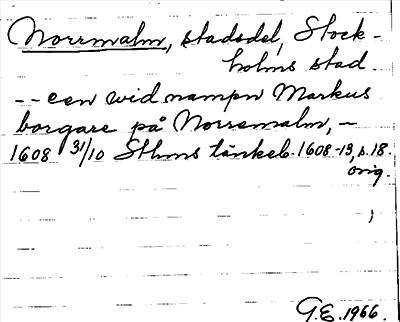 Norrmalm, stadsdel, Stock-
holms stad.
-- een wid nampn Markus
borgare på Norremalm, –
1608 31/10 Sthms tänkeb. 1608-13, s. 18.
orig.
G.E. 1966.